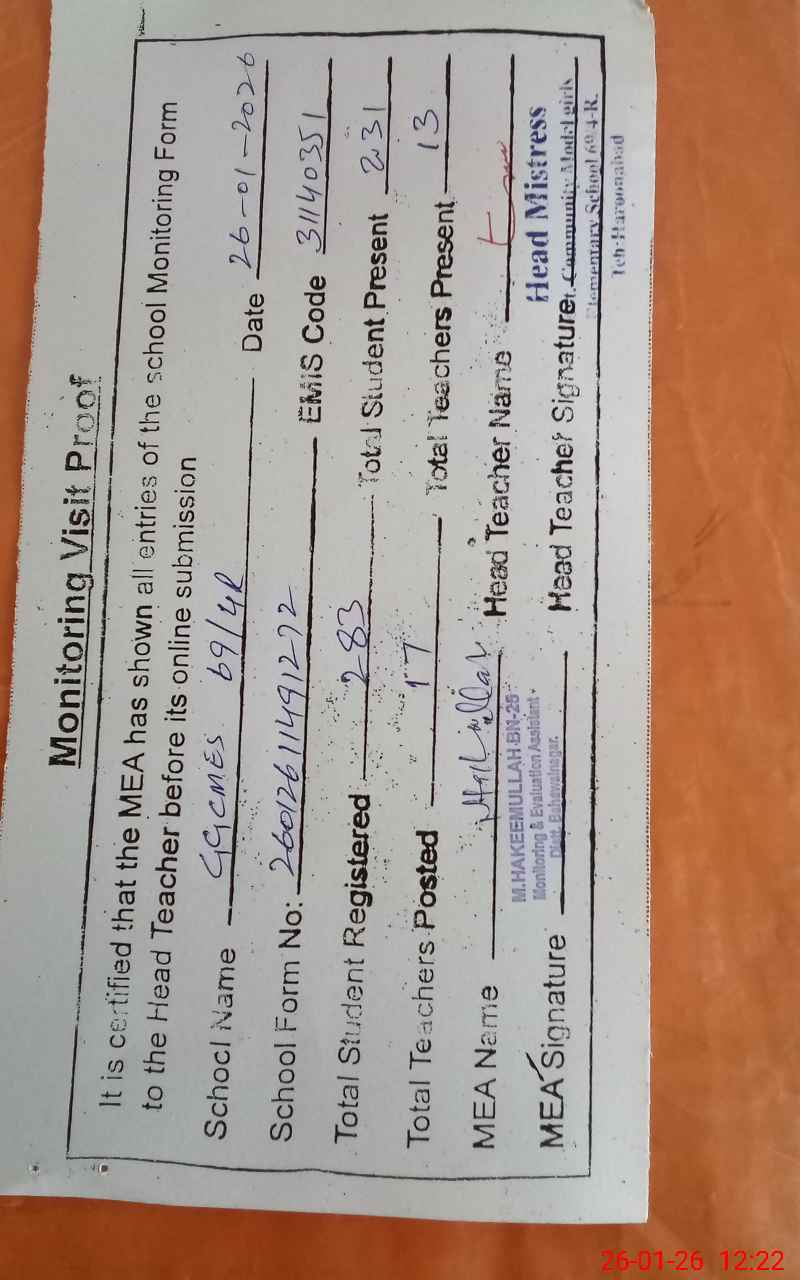 Monitoring Visit Proof
It is certified that the MEA has shown all entries of the school Monitoring Form
to the Head Teacher before its online submission
School Name GGCMES 69/4R Date 26-01-2026
School Form No: 26012611491272 EMIS Code 31140351
Total Student Registered 283 Total Student Present 231
Total Teachers Posted 17 Total Teachers Present 13
MEA Name Head Teacher Name
M.HAKEEMULLAH BN-25
Monitoring & Evaluation Assistant
Distt. Bahawalnagar.
Head Mistress
MEA Signature Head Teacher Signature
Community Model girls
Elementary School 69/4-R.
Teh: Haroonabad
26-01-26 12:22